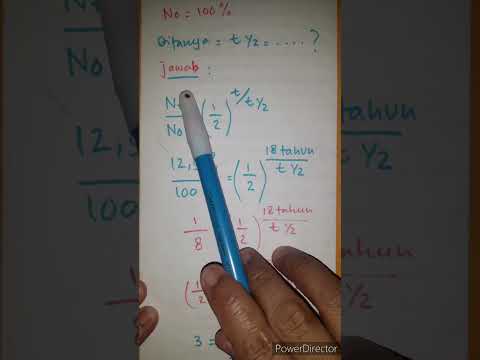 No = 100%
Ditanya = t ½ = ..... ?
Jawab :
N
No
(1/2) t/t ½
12,
100
= (1/2) 18 tahun / t ½
1/8
1/2) 18 tahun / t ½
(1/2
3 =
PowerDirector